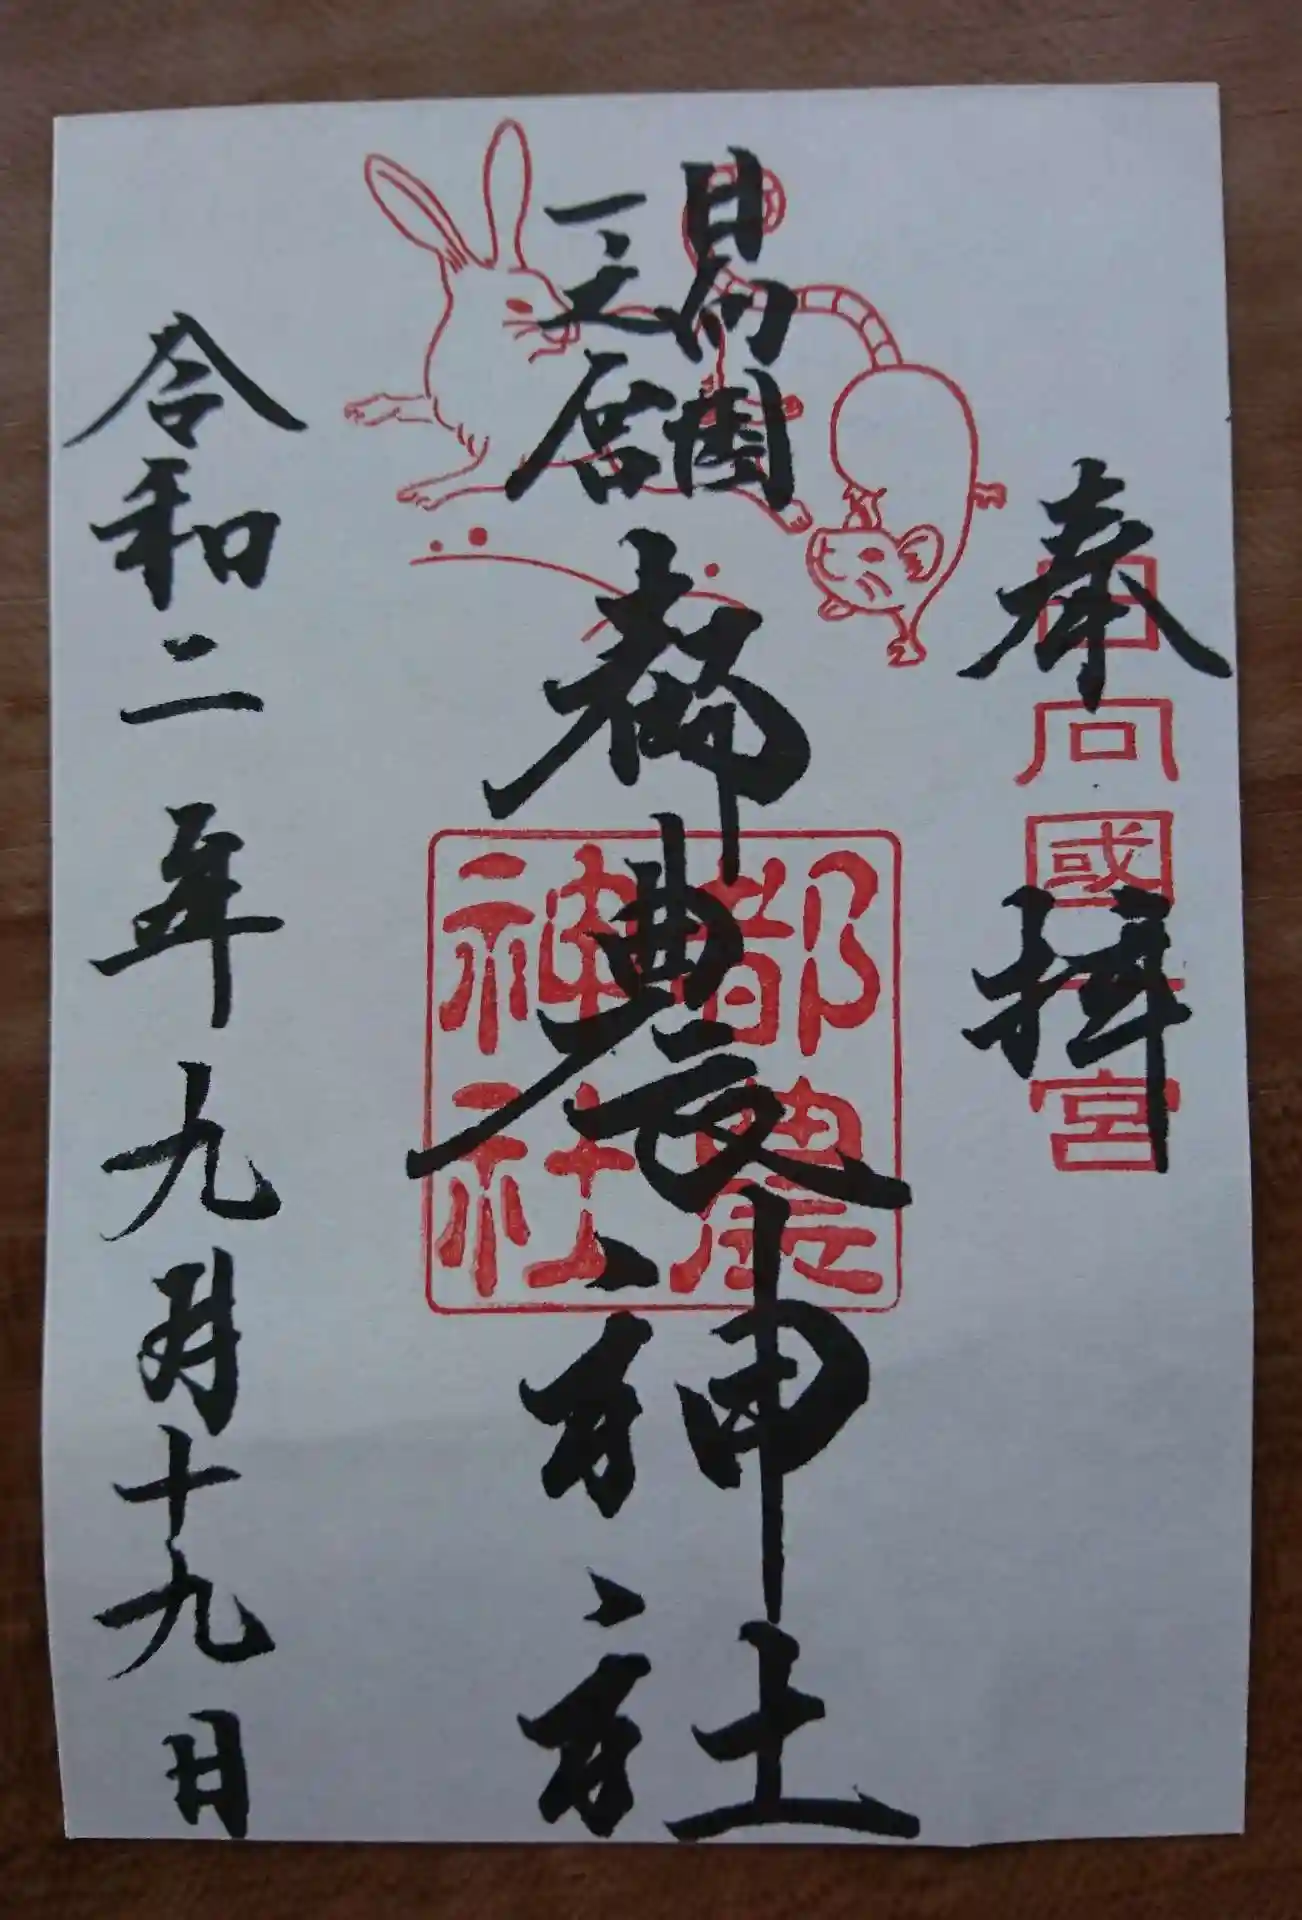 奉拝
日向國一宮
日向國
一之宮
都農神社
都農神社
令和二年九月十九日